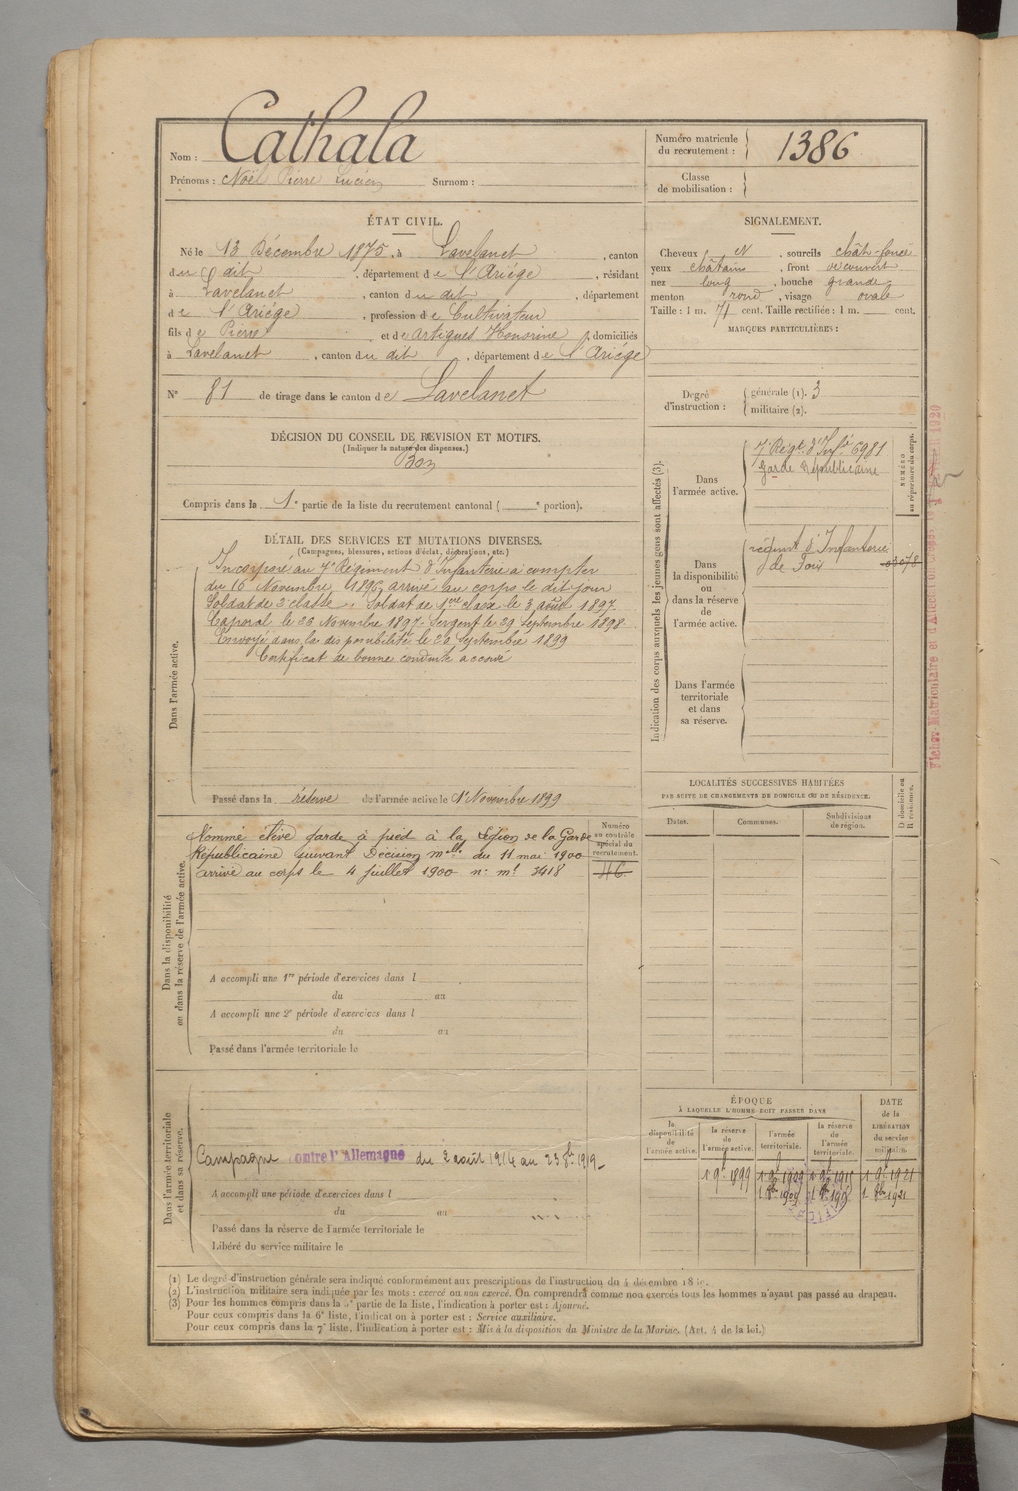 Nom : Cathala
Prénoms : Noël Pierre Lucien Surnom :
Numéro matricule du recrutement : 1386
Classe de mobilisation :
ÉTAT CIVIL.
Né le 13 Décembre 1875, à Lavelanet, canton
du dit, département de l'Ariège, résidant
à Lavelanet, canton du dit, département
de l'Ariège, profession de Cultivateur
fils de Pierre et de Artigues Honorine, domiciliés
à Lavelanet, canton du dit, département de l'Ariège
N° 81 de tirage dans le canton de Lavelanet
SIGNALEMENT.
Cheveux et, sourcils chât-foncé
yeux châtains, front découvert
nez long, bouche grande
menton rond, visage ovale
Taille : 1 m. 71 cent. Taille rectifiée : 1 m. cent.
MARQUES PARTICULIÈRES :
Degré d'instruction : générale (1). 3
militaire (2).
DÉCISION DU CONSEIL DE REVISION ET MOTIFS.
(Indiquer la nature des dispenses.)
Bon
Compris dans la 1e partie de la liste du recrutement cantonal ( e portion).
DÉTAIL DES SERVICES ET MUTATIONS DIVERSES.
(Campagnes, blessures, actions d'éclat, décorations, etc.)
Dans l'armée active.
Incorporé au 7e Régiment d'Infanterie à compter
du 16 Novembre 1896, arrivé au corps le dit jour
Soldat de 2e classe. Soldat de 1ère classe le 3 août 1897.
Caporal le 26 Novembre 1897. Sergent le 29 Septembre 1898.
Envoyé dans la disponibilité le 20 Septembre 1899
Certificat de bonne conduite accordé
Passé dans la réserve de l'armée active le 1er Novembre 1899
Indication des corps auxquels les jeunes gens sont affectés (3).
Dans l'armée active.
7e Régt d'Infie 6981
Garde Républicaine
NUMÉRO au répertoire du corps.
Dans la disponibilité ou dans la réserve de l'armée active.
régiment d'Infanterie
de Foix
03078
Dans l'armée territoriale et dans sa réserve.
Dans la disponibilité ou dans la réserve de l'armée active.
Nommé élève garde à pied à la Légion de la Garde
Républicaine suivant Décision melle du 11 mai 1900
arrivé au corps le 4 juillet 1900 n: ml 3418
Numéro au contrôle spécial du recrutement.
A accompli une 1re période d'exercices dans l
du au
A accompli une 2e période d'exercices dans l
du au
Passé dans l'armée territoriale le
LOCALITÉS SUCCESSIVES HABITÉES
PAR SUITE DE CHANGEMENTS DE DOMICILE OU DE RÉSIDENCE.
Dates. Communes. Subdivisions de région. D domicile ou R résidence.
Dans l'armée territoriale et dans sa réserve.
Campagne contre l'Allemagne du 2 août 1914 au 23 fr 1919
A accompli une période d'exercices dans l
du au
Passé dans la réserve de l'armée territoriale le
Libéré du service militaire le
ÉPOQUE
À LAQUELLE L'HOMME DOIT PASSER DANS
la disponibilité de l'armée active. la réserve de l'armée active. l'armée territoriale. la réserve de l'armée territoriale.
DATE de la LIBÉRATION du service militaire.
(1) Le degré d'instruction générale sera indiqué conformément aux prescriptions de l'instruction du 4 décembre
(2) L'instruction militaire sera indiquée par les mots : exercé ou non exercé. On comprendra comme non exercés tous les hommes n'ayant pas passé au drapeau.
(3) Pour les hommes compris dans la partie de la liste, l'indication à porter est : Ajourné.
Pour ceux compris dans la 6e liste, l'indication à porter est : Service auxiliaire.
Pour ceux compris dans la 7e liste, l'indication à porter est : Mis à la disposition du Ministre de la Marine. (Art. 4 de la loi.)